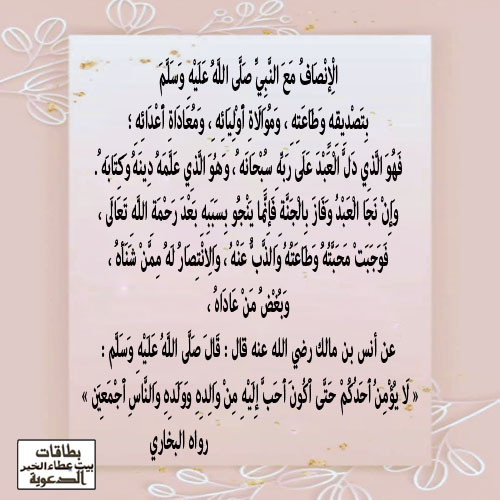 الْإِنْصَافُ مَعَ النَّبِيِّ صَلَّى اللَّهُ عَلَيْهِ وَسَلَّمَ
بِتَصْدِيقِهِ وَطَاعَتِهِ ، وَمُوَالَاةِ أَوْلِيَائِهِ ، وَمُعَادَاةِ أَعْدَائِهِ ؛
فَهُوَ الَّذِي دَلَّ الْعَبْدَ عَلَى رَبِّهِ سُبْحَانَهُ ، وَهُوَ الَّذِي عَلَّمَهُ دِينَهُ وَكِتَابَهُ .
وَإِنْ نَجَا الْعَبْدُ وَفَازَ بِالْجَنَّةِ فَإِنَّمَا يَنْجُو بِسَبَبِهِ بَعْدَ رَحْمَةِ اللَّهِ تَعَالَى ،
فَوَجَبَتْ مَحَبَّتُهُ وَطَاعَتُهُ وَالذَّبُّ عَنْهُ ، وَالِانْتِصَارُ لَهُ مِمَّنْ شَنَأَهُ ،
وَبُغْضُ مَنْ عَادَاهُ ،
عن أنس بن مالك رضي الله عنه قال : قَالَ صَلَّى اللَّهُ عَلَيْهِ وَسَلَّم :
« لَا يُؤْمِنُ أَحَدُكُمْ حَتَّى أَكُونَ أَحَبَّ إِلَيْهِ مِنْ وَالِدِهِ وَوَلَدِهِ وَالنَّاسِ أَجْمَعِينَ »
رواه البخاري
بطاقات
بيت عطاء الخير
الدعوية